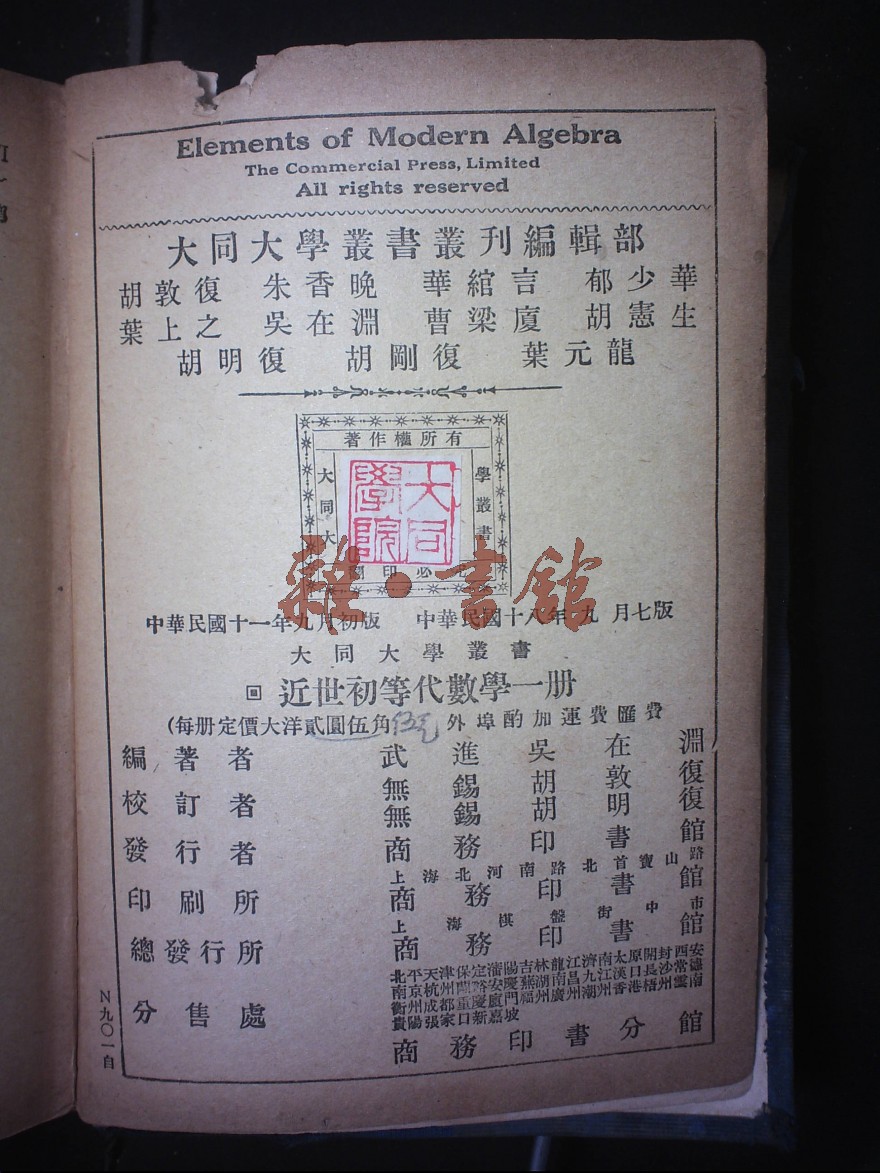 Elements of Modern Algebra
The Commercial Press, Limited
All rights reserved
大同大學叢書叢刊編輯部
胡敦復 朱香晚 華綰言 郁少華
葉上之 吳在淵 曹梁廈 胡憲生
胡明復 胡剛復 葉元龍
有所權作著
大同大
學叢書
大同學院
必印
雜·書館
中華民國十一年九月初版 中華民國十八年九月七版
大同大學叢書
回 近世初等代數學一册
(每册定價大洋貳圓伍角 外埠酌加運費匯費
編著者 武進吳在淵
校訂者 無錫胡敦復
無錫胡明復
發行者 商務印書館
上海北河南路北首寶山路
印刷所 商務印書館
上海棋盤街中市
總發行所 商務印書館
分售處
北平天津保定瀋陽吉林龍江濟南太原開封西安
貴陽張家口新嘉坡
商務印書分館
N九〇一自